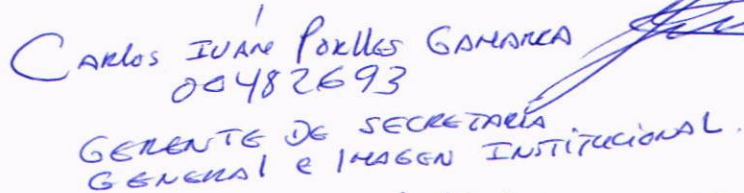 Carlos Iván Porlles Gamarra
00482693
Gerente de Secretaría
General e Imagen Institucional.